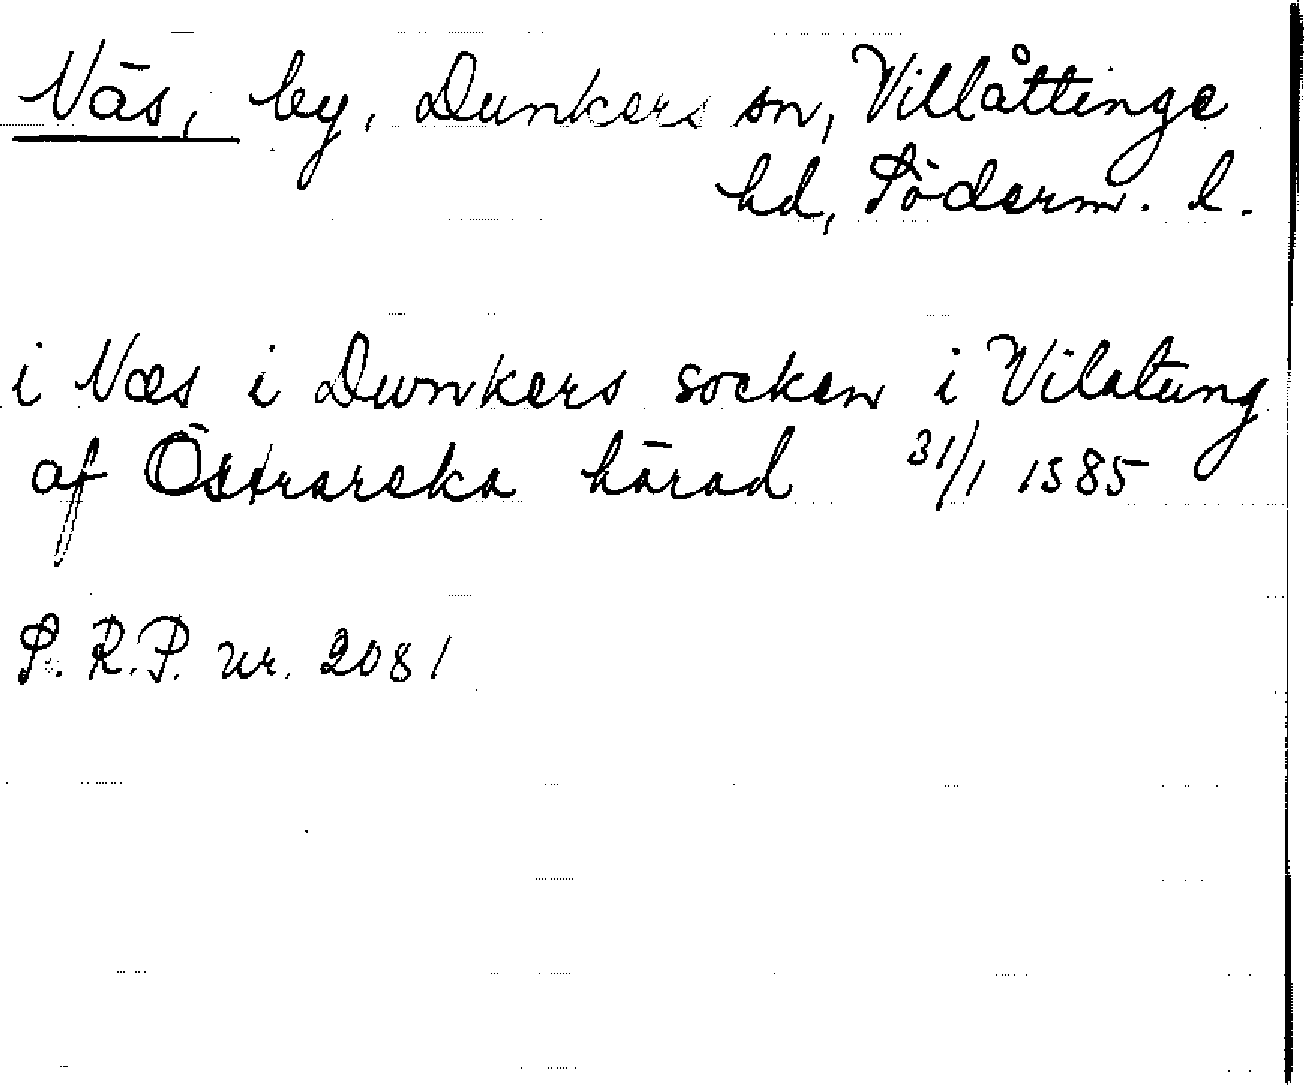 Näs, by, Dunkers sn, Villåttinge
hd, Söderm. l.
i Næs i Dunkers socken i Vilatung
af Östrareka härad 31/1 1385
S. R.P. nr. 2081